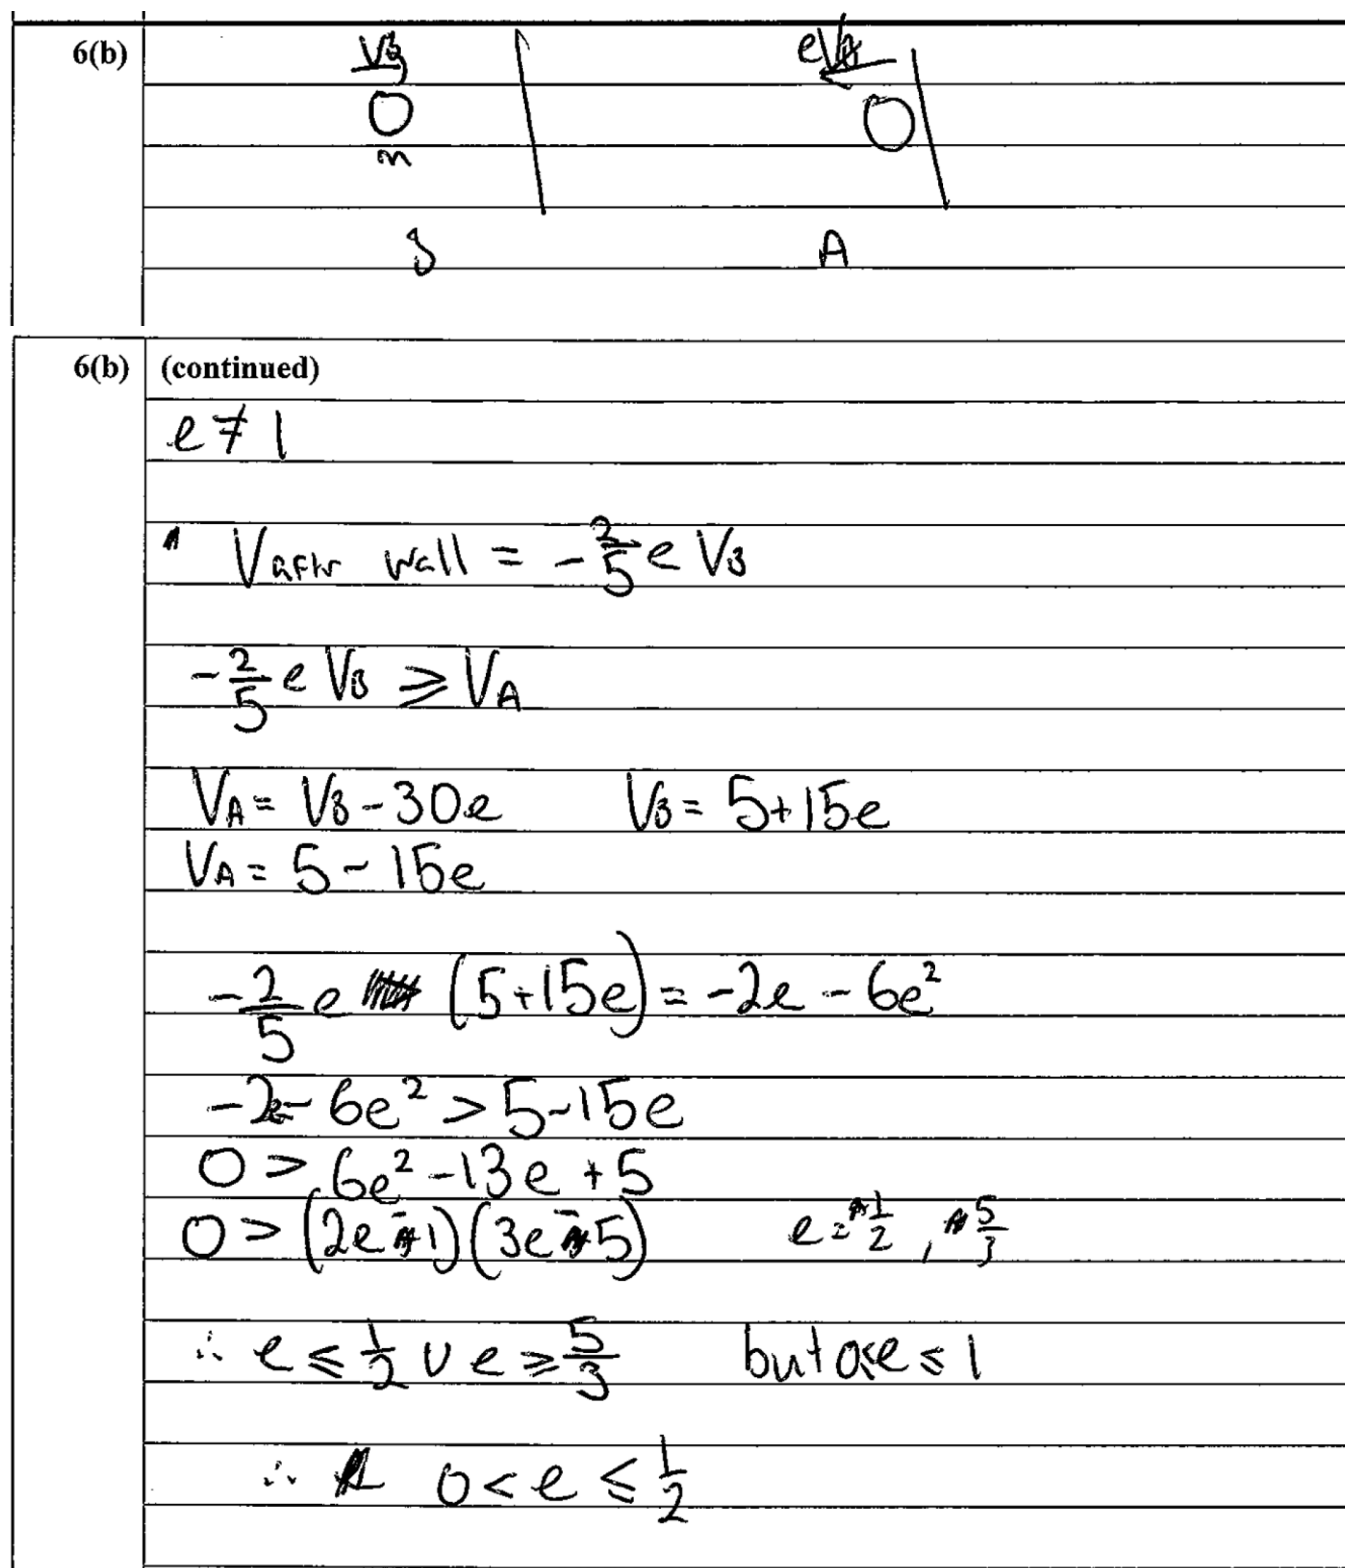 6(b)
V_B eV_A
m
B A
6(b) (continued)
e ≠ 1
V after wall = -2/5 e V_B
-2/5 e V_B ⩾ V_A
V_A = V_B - 30e V_B = 5 + 15e
V_A = 5 - 15e
-2/5 e (5 + 15e) = -2e - 6e²
-2e - 6e² > 5 - 15e
0 > 6e² - 13e + 5
0 > (2e - 1)(3e - 5) e = 1/2, 5/3
∴ e ⩽ 1/2 ∪ e ⩾ 5/3 but 0 < e ⩽ 1
∴ 0 < e ⩽ 1/2